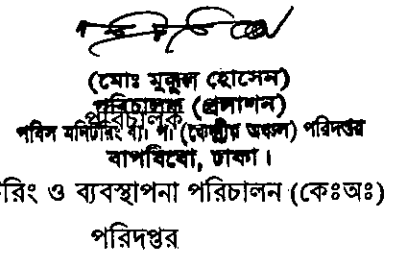 (মোঃ মুকুল হোসেন)
পরিচালক (প্রশাসন)
পরিচালক
পবিস মনিটরিং ব্যা: প: (কেন্দ্রীয় অঞ্চল) পরিদপ্তর
বাপবিবো, ঢাকা।
রিং ও ব্যবস্থাপনা পরিচালন (কেঃঅঃ)
পরিদপ্তর